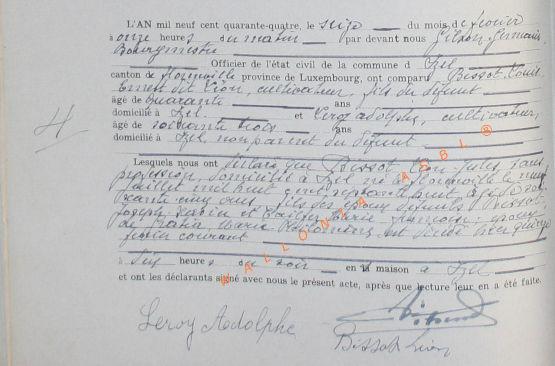 L'AN mil neuf cent quarante-quatre, le seize du mois de février
à onze heures du matin par devant nous Gilson Germain
Bourgmestre
Officier de l'état civil de la commune d Izel
canton de Florenville province de Luxembourg, ont comparu Bissot, Louis
dit Léon, cultivateur, fils du défunt
âgé de quarante ans
domicilié à Izel et Leroy Adolphe, cultivateur,
âgé de soixante trois ans
domicilié à Izel, non parent du défunt
4
Lesquels nous ont déclaré que Bissot, Léon Jules, sans
profession, domicilié à Izel né à Florenville le neuf
juillet mil huit cent septante huit, âgé de soi
xante cinq ans, fils des époux défunts Bissot
Joseph et Marie époux
de Marie est décédé hier quinze
février courant
à six heures du soir en la maison à Izel
et ont les déclarants signé avec nous le présent acte, après que lecture leur en a été faite.
WALLONIA ASBL ®
Leroy Adolphe
Bissot Léon